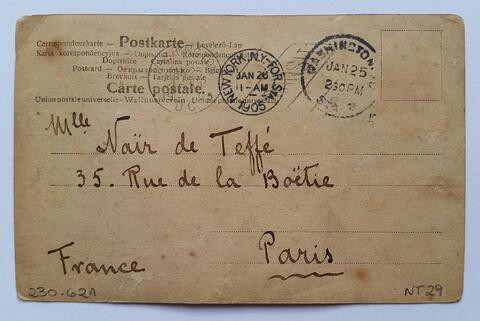 Correspondenzkarte — Postkarte — Levelező-Lap
Karta korespondencyjna — Dopisnice — Korespondenční
Dopisnice — Cartolina postale
Postcard — Открытое письмо — Briefkaart
Brevkort — Tarjeta postale
Carte postale.
Union postale universelle — Weltpostverein — Unione postale universale
NEW YORK, N.Y.-FOR. STA.
JAN 26
11-AM
1905
WASHINGTON,
JAN 25
2 30 PM
Mlle
Naïr de Teffé
35. Rue de la Boëtie
Paris
France
230-621
NT29